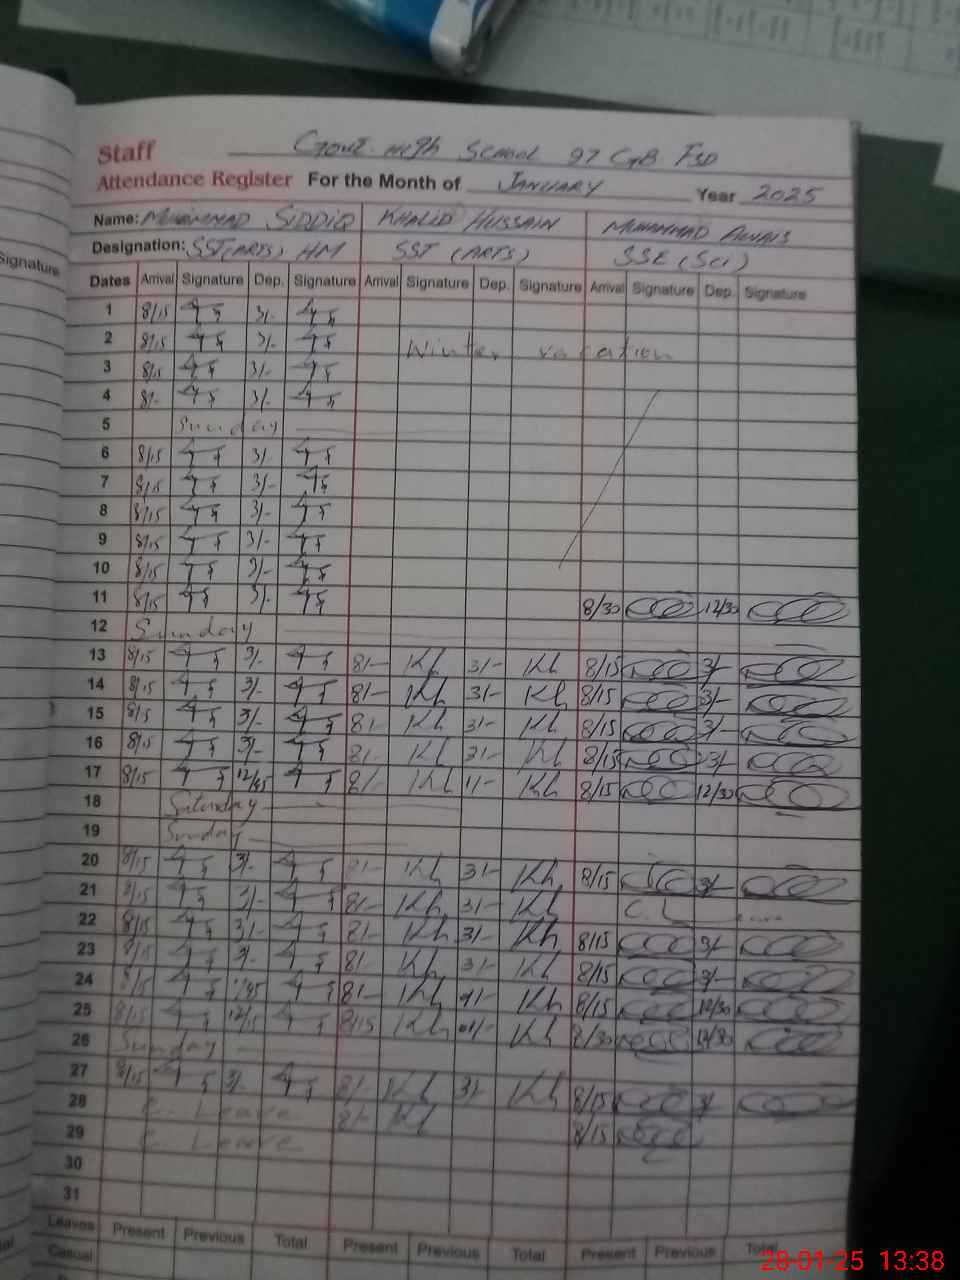 Staff Govt. High School 97 GB FSD
Attendance Register For the Month of JANUARY Year 2025
Name: MUHAMMAD SIDDIQ KHALID HUSSAIN MUHAMMAD AWAIS
Designation: SST(ARTS) HM SST (ARTS) SSE (Sci)
Signature
Dates Arrival Signature Dep. Signature Arrival Signature Dep. Signature Arrival Signature Dep. Signature
1 8/15 3/-
2 8/15 3/- Winter vacation
3 8/15 3/-
4 8/- 3/-
5 Sunday
6 8/15 3/-
7 8/15 3/-
8 8/15 3/-
9 8/15 3/-
10 8/15 3/-
11 8/15 3/- 8/30 12/30
12 Sunday
13 8/15 3/- 8/- Kh 3/- Kh 8/15 3/-
14 8/15 3/- 8/- Kh 3/- Kh 8/15 3/-
15 8/15 3/- 8/- Kh 3/- Kh 8/15 3/-
16 8/15 3/- 8/- Kh 3/- Kh 8/15 3/-
17 8/15 12/45 8/- Kh 1/- Kh 8/15 12/30
18 Saturday
19 Sunday
20 8/15 3/- 8/- Kh 3/- Kh 8/15 3/-
21 8/15 3/- 8/- Kh 3/- Kh C. Leave
22 8/15 3/- 8/- Kh 3/- Kh 8/15 3/-
23 8/15 3/- 8/- Kh 3/- Kh 8/15 3/-
24 8/15 8/- Kh Kh 8/15 12/30
25 8/15 12/15 8/15 Kh Kh 8/30 12/30
26 Sunday
27 8/15 3/- 8/- Kh 3/- Kh 8/15 3/-
28 C. Leave 8/- Kh 8/15
29 C. Leave
30
31
Leaves Present Previous Total Present Previous Total Present Previous Total
Casual
28-01-25 13:38